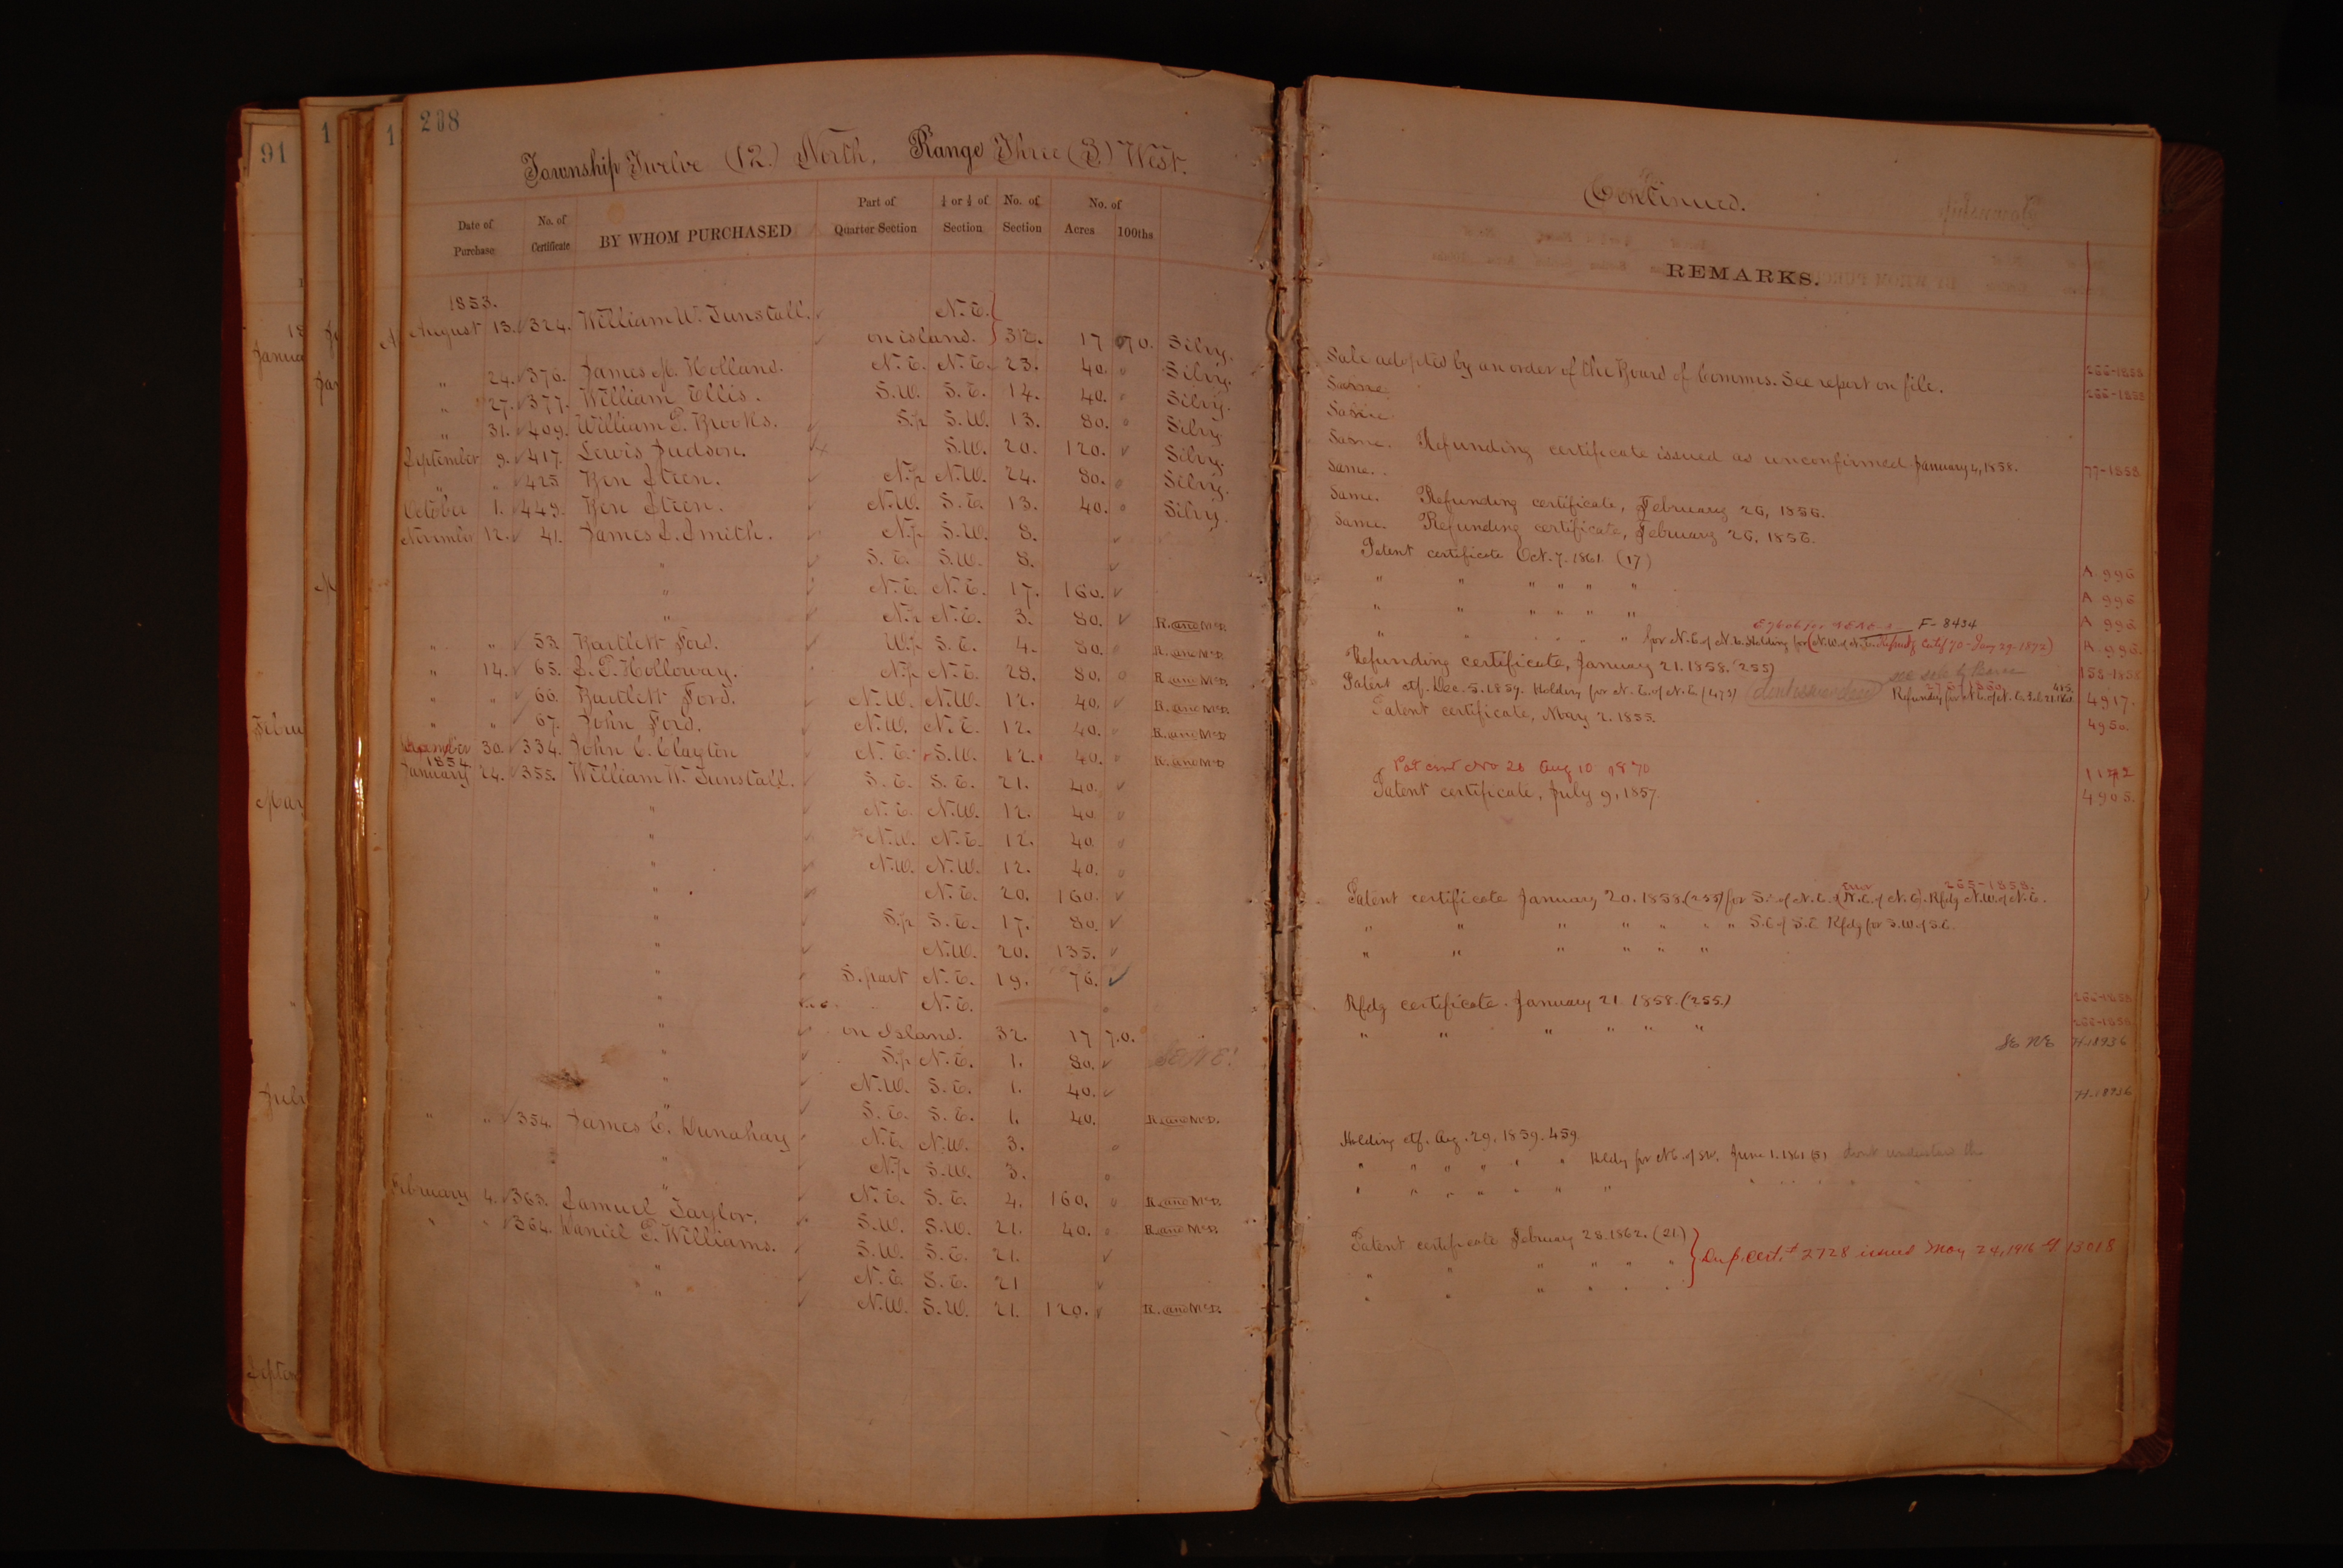 91
1
1
208
Township Twelve (12.) North, Range Three (3) West.
Date of Purchase
No. of Certificate
BY WHOM PURCHASED
Part of Quarter Section
½ or ¼ of Section
No. of Section
No. of Acres
100ths
1853.
August 13. 324. William W. Tunstall. N.E.
on island. 32. 17 70. Silvy.
" 24. 376. James M. Holland. N.E. N.E. 23. 40. Silvy.
" 27. 377. William Ellis. S.W. S.E. 14. 40. Silvy.
" 31. 409. William P. Brooks. S.p S.W. 13. 80. Silvy
September 9. 417. Lewis Judson. S.W. 20. 120. Silvy.
" " 425 Ben Steen. N.p N.W. 24. 80. Silvy.
October 1. 449. Ben Steen. N.W. S.E. 13. 40. Silvy.
November 12. 41. James S. Smith. N.p S.W. 8.
" S.E. S.W. 8.
" N.E. N.E. 17. 160.
" N.p N.E. 3. 80. R. and McD.
" " 53. Bartlett Ford. W.p S.E. 4. 80. R. and McD.
" 14. 65. S. P. Holloway. N.p N.E. 28. 80. R. and McD.
" " 66. Bartlett Ford. N.W. N.W. 12. 40. R. and McD.
" " 67. John Ford. N.W. N.E. 12. 40. R. and McD.
December 30. 334. John C. Clayton N.E. S.W. 12. 40. R. and McD.
1854.
January 24. 355. William W. Tunstall. S.E. S.E. 21. 40.
" N.E. N.W. 12. 40
" N.W. N.E. 12. 40.
" N.W. N.W. 12. 40.
" N.E. 20. 160.
" S.p S.E. 17. 80.
" N.W. 20. 135.
" S. part N.E. 19. 76.
" N.E.
" on Island. 32. 17 70.
" S.p N.E. 1. 80.
" N.W. S.E. 1. 40.
" S.E. S.E. 1. 40. R. and McD.
" " 354. James C. Dunahay N.E. N.W. 3.
" N.p S.W. 3.
" N.E. S.E. 4. 160. R. and McD.
February 4. 363. Samuel Taylor. S.W. S.W. 21. 40. R. and McD.
" " 364. Daniel P. Williams. S.W. S.E. 21.
" N.E. S.E. 21
" N.W. S.W. 21. 120. R. and McD.
Continued.
REMARKS.
Sale adopted by an order of the Board of Commrs. See report on file. 266-1858
Same 266-1858
Same.
Same. Refunding certificate issued as unconfirmed January 4, 1858.
Same. 77-1858
Same. Refunding certificate, February 26, 1856.
Same. Refunding certificate, February 26, 1856.
Patent certificate Oct. 7. 1861. (17) A 996
" " " " " " A 996
" " " " " " A 996
F-8434
" " " " " " for N.E. of N.E. Holding for (N.W. of N.E. 1872) 996
Refunding certificate, January 21. 1858. (255) 155-1858
Patent ctf. Dec. 5. 1859. Holding for N.E. of N.E. (473) 4917.
Patent certificate, May 2. 1855. 4950.
Pat cert No 26 Aug 10 1870 1142
Patent certificate, July 9, 1857. 4905.
265-1858.
Patent certificate January 20. 1858. (255) for S. of N.E. & N.E. of N.E. Rfdg N.W. of N.E.
" " " " " " " S.E. of S.E Rfdg for S.W. of S.E.
" " " " " "
Rfdg certificate. January 21. 1858. (255.) 266-1858
" " " " " " 266-1858
SE NE H. 18936
H. 18936
Holding ctf. Aug. 29, 1859. 459.
" " " " " " Holdg for N.E. of S.W. June 1. 1861 (5)
" " " " " " "
Patent certificate February 28. 1862. (21.) } Dup. Cert. # 2728 issued May 24, 1916 G 13018
" " " " " "
" " " " " "